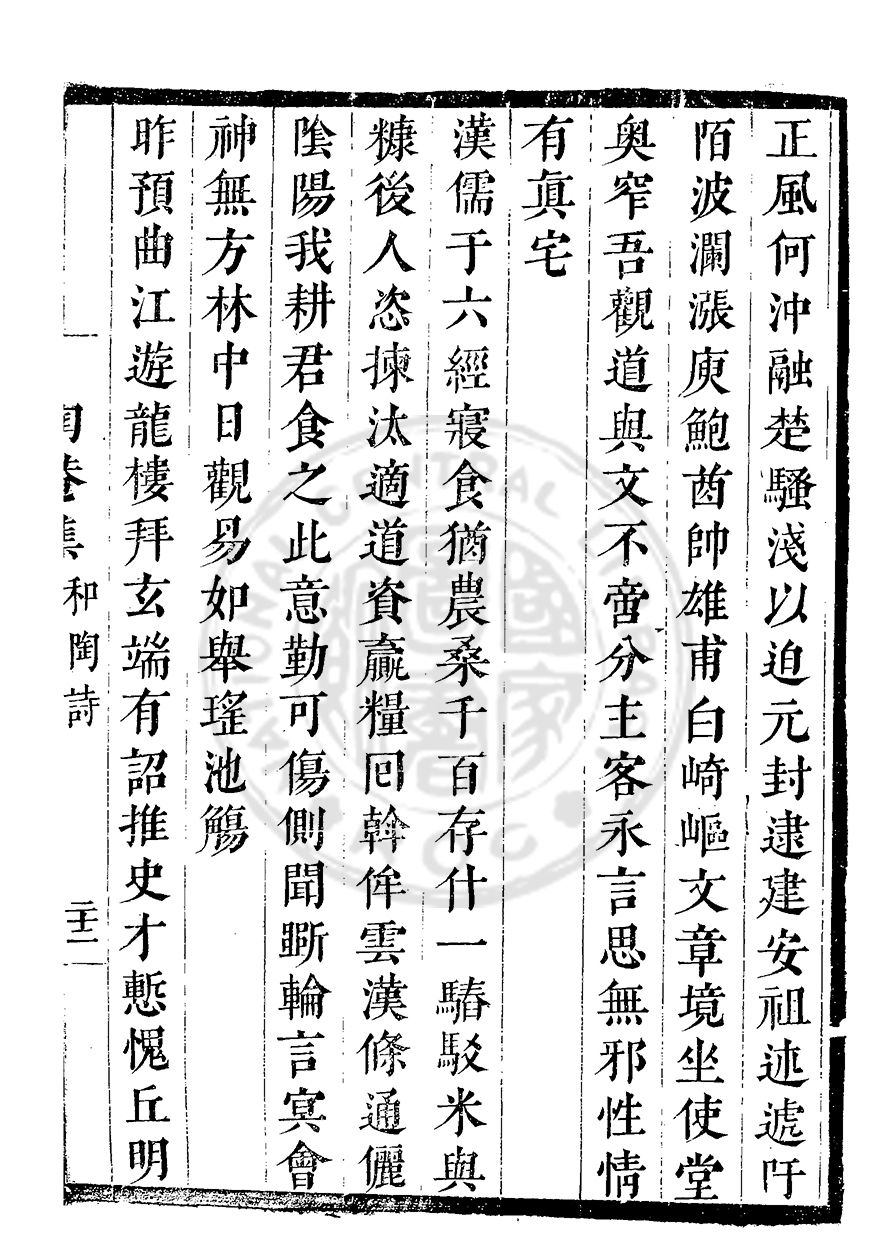 正風何沖融楚騷淺以迫元封逮建安祖述遞吁
陌波瀾漲庾鮑酋帥雄甫白崎嶇文章境坐使堂
奥窄吾觀道與文不啻分主客永言思無邪性情
有眞宅
漢儒于六經寢食猶農桑千百存什一駁米與
糠後人恣揀汰適道資贏糧囘斡侔雲漢條通儷
陰陽我耕君食之此意勤可傷側聞斲輪言㝠會
神無方林中日觀易如舉瑤池觴
昨預曲江遊龍樓拜玄端有詔推史才慙愧丘明
陶菴集 和陶詩 二十二